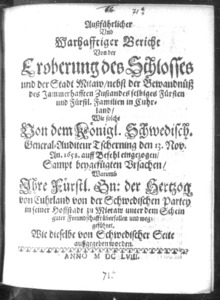 Außführlicher
Und
Warhafftiger Bericht
Von der
Eroberung des Schlosses
und der Stadt Mitaw/nebst der Bewandnüß
des Jammerhafften Zustandes selbiges Fürsten
und Fürstl. Familien in Cuhr-
land/
Wie solche
Von dem Königl. Schwedisch.
General-Auditeur Tscherning den 13. Nov.
An. 1658. auff Befehl eingezogen/
Sampt beygefügten Ursachen/
Warumb
Ihre Fürstl. Gn: der Hertzog
von Cuhrland von der Schwedischen Partey
in seiner Hoffstadt zu Mietaw unter dem Schein
guter Freundschafft überfallen und weg-
geführet.
Wie dieselbe von Schwedischer Seite
außgegeben worden.
ANNO M DC LVIII.